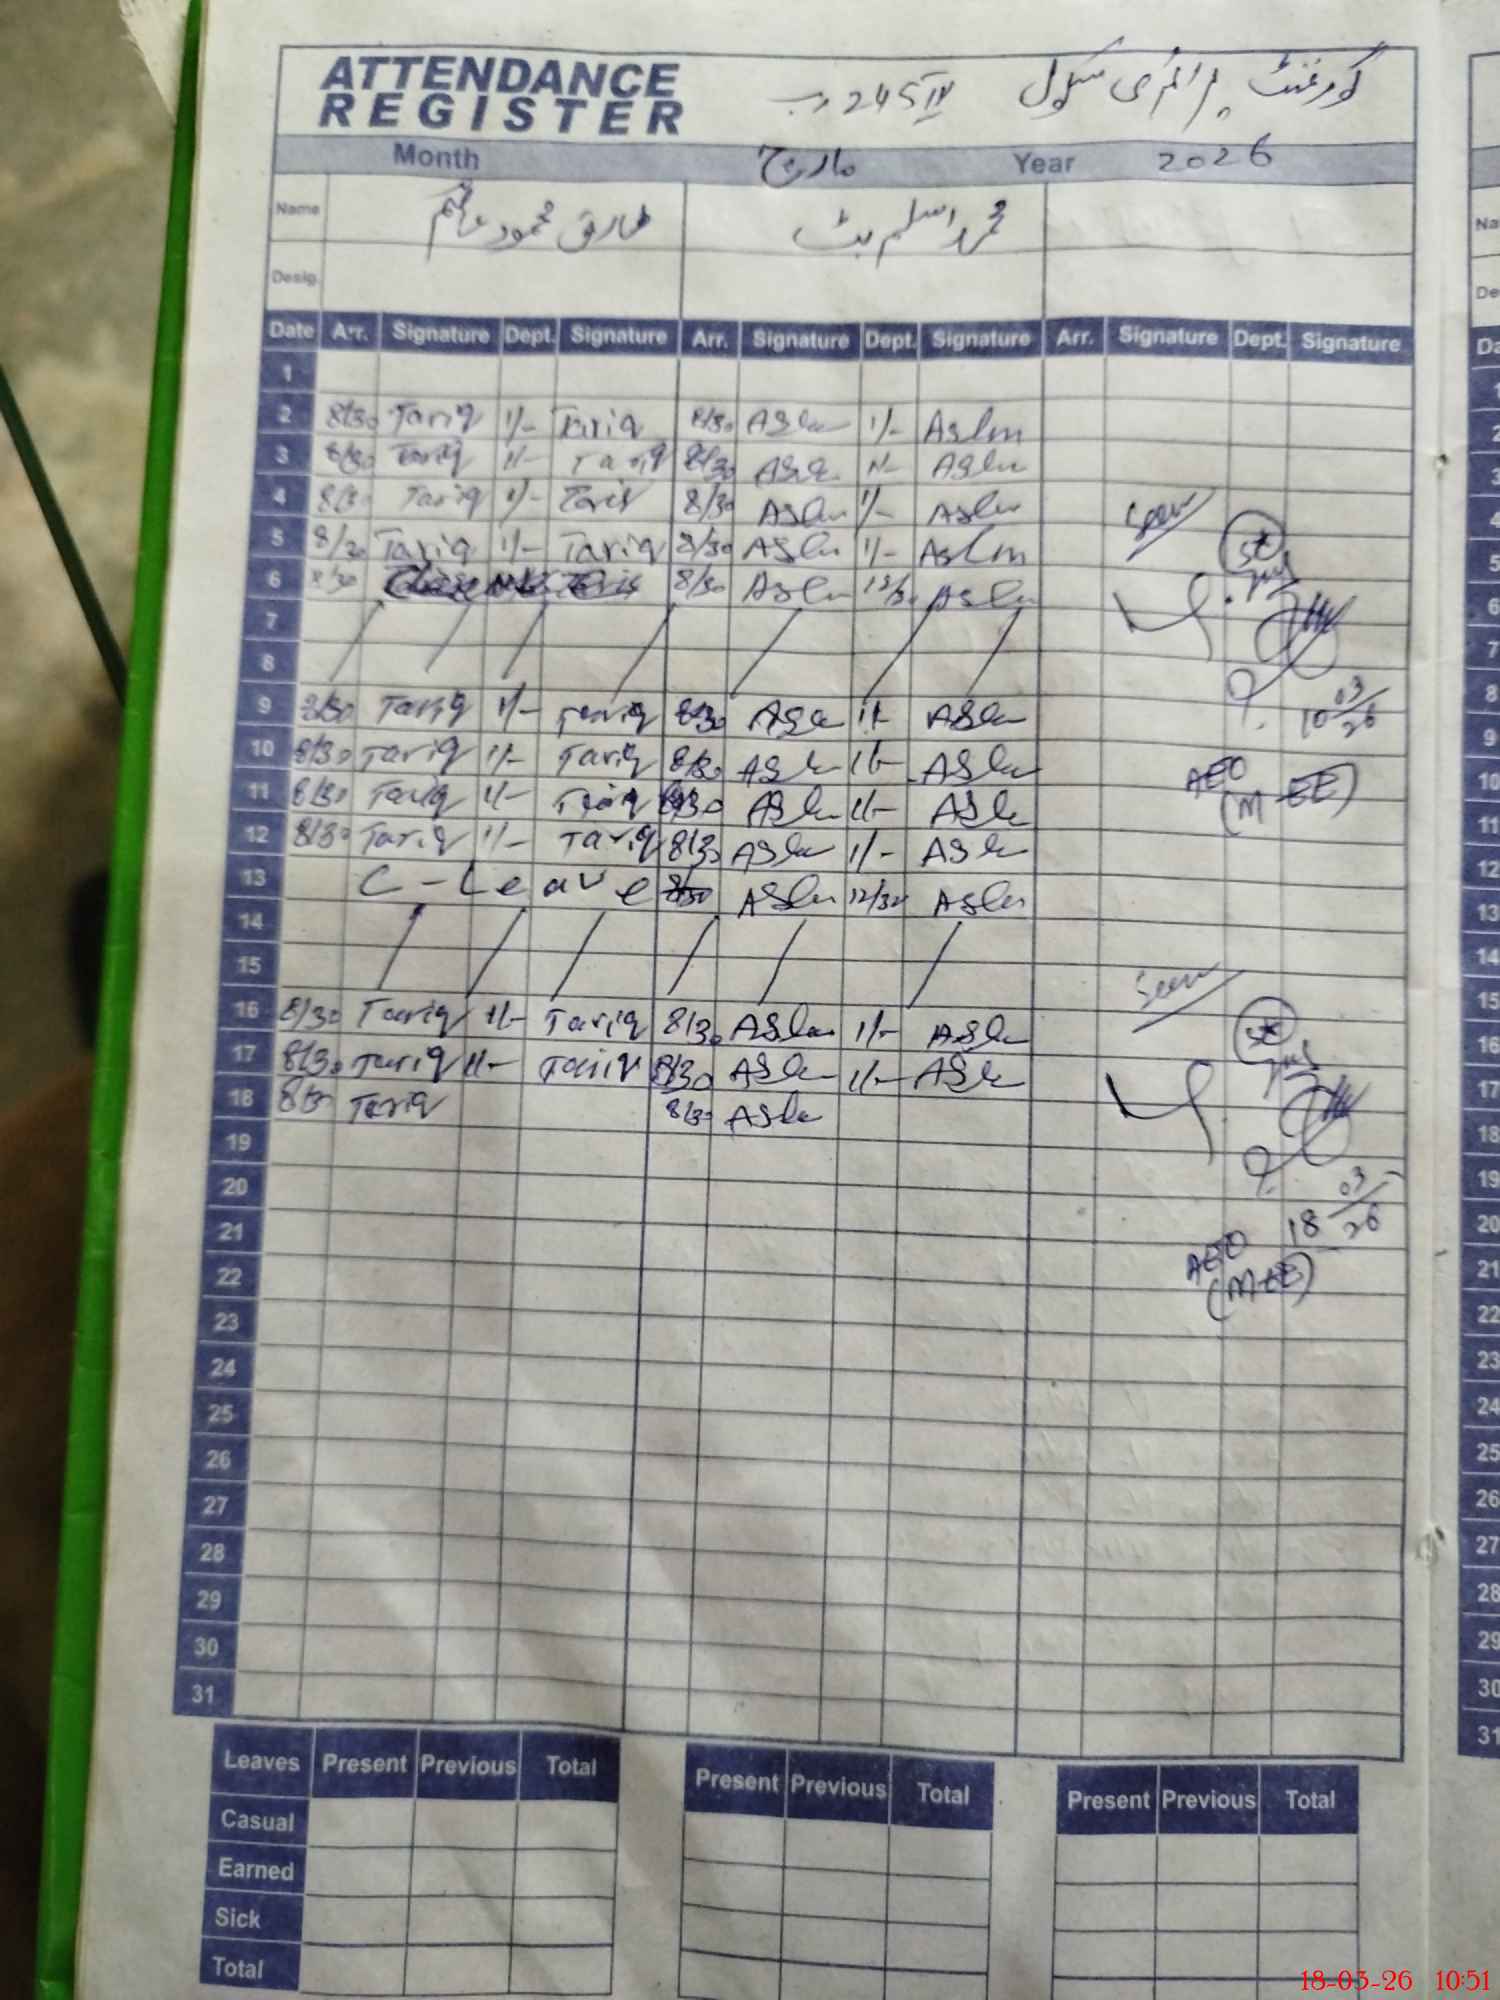 ATTENDANCE REGISTER
گورنمنٹ پرائمری سکول 245 IV رب
Month مارچ Year 2026
Name طارق محمود محمد اسلم بٹ
Desig.
Date Arr. Signature Dept. Signature Arr. Signature Dept. Signature Arr. Signature Dept. Signature
1
2 8/30 Tariq 1/- Tariq 8/30 Aslm 1/- Aslm
3 8/30 Tariq 1/- Tariq 8/30 Aslm 1/- Aslm
4 8/30 Tariq 1/- Tariq 8/30 Aslm 1/- Aslm
Seen
5 8/30 Tariq 1/- Tariq 8/30 Aslm 1/- Aslm
6 8/30 8/30 Aslm 12/30 Aslm
7
8
9 8/30 Tariq 1/- Tariq 8/30 Aslm 1/- Aslm
10 03/26
10 8/30 Tariq 1/- Tariq 8/30 Aslm 1/- Aslm
AEO
11 8/30 Tariq 1/- Tariq 8/30 Aslm 1/- Aslm
(M-EE)
12 8/30 Tariq 1/- Tariq 8/30 Aslm 1/- Aslm
13 C-Leave 8/30 Aslm 12/30 Aslm
14
15
Seen
16 8/30 Tariq 1/- Tariq 8/30 Aslm 1/- Aslm
17 8/30 Tariq 1/- Tariq 8/30 Aslm 1/- Aslm
18 8/30 Tariq 8/30 Aslm
19
20
18 03/26
21
AEO
22
(M-EE)
23
24
25
26
27
28
29
30
31
Leaves Present Previous Total Present Previous Total Present Previous Total
Casual
Earned
Sick
Total
18-03-26 10:51